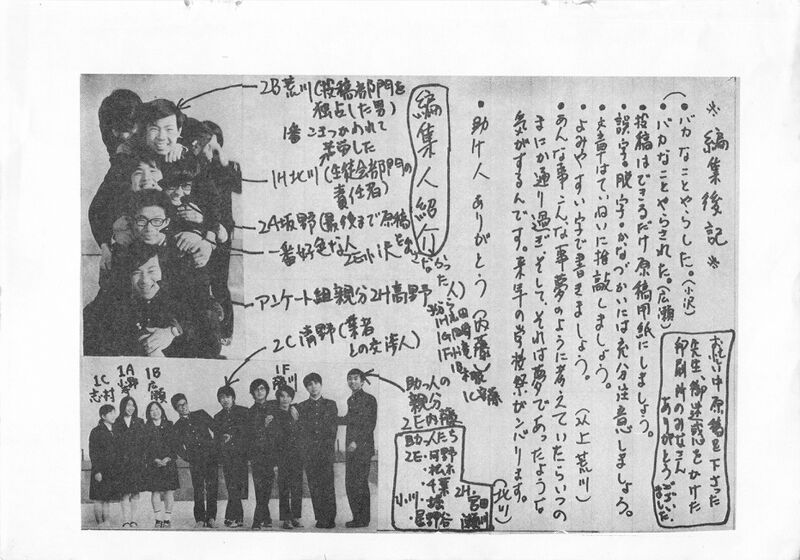 ※ 編集後記 ※
・バカなことやらした。(小沢)
・バカなことやらされた。(広瀬)
・投稿はできるだけ原稿用紙にしましょう。
・誤字・脱字・かなづかいには充分注意しましょう。
・文章はていねいに推敲しましょう。
・よみやすい字で書きましょう。 (以上 荒川)
・あんな事こんな事夢のように考えていたらいつの
まにか通り過ぎ そして、それは夢であったような
気がするんです。来年の学校祭ガンバります。
(北川)
・助け人 ありがとう (内藤)
お忙しい中原稿を下さった
先生 御迷惑をかけた
印刷所のみなさん
ありがとうございました
編集人紹介
2B荒川(投稿部門を
独占した男)
1番こきつかわれて
1H北川(生徒会部門の
責任者)
2A坂野(最後まで原稿
一番好色な人
2E小沢
アンケート組親分 2H高野
2C清野(業者
との交渉人)
1C
志村
1A
小野
1B
広瀬
1F
助っ人の
親分
2E内藤
助っ人たち
2E・日野
・松木
・千葉
・星野
2H 宮田